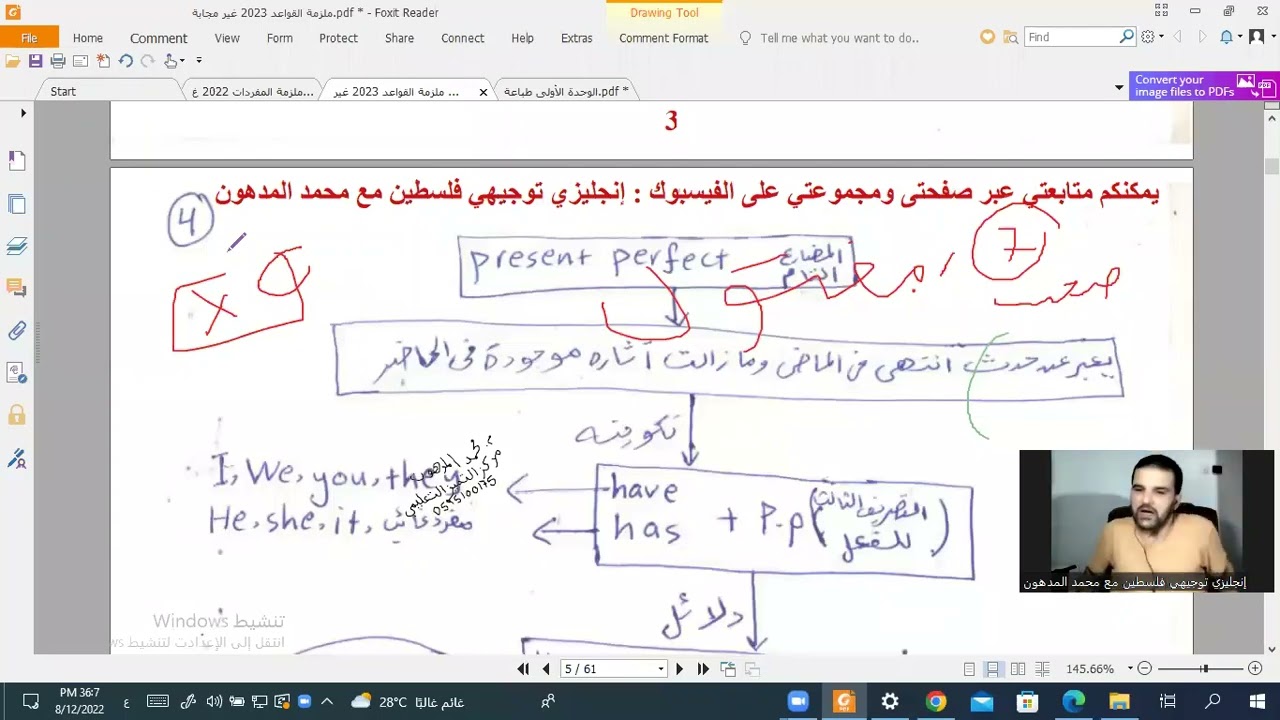 ملزمة القواعد 2023 غير مجابة.pdf * - Foxit Reader
Drawing Tool
File Home Comment View Form Protect Share Connect Help Extras Comment Format Tell me what you want to do.. Find
Start
ملزمة المفردات 2022 غ...
ملزمة القواعد 2023 غير ...
الوحدة الأولى طباعة.pdf *
Convert your
image files to PDFs
3
يمكنكم متابعتي عبر صفحتى ومجموعتي على الفيسبوك : إنجليزي توجيهي فلسطين مع محمد المدهون
4
present perfect المضارع التام
7
X
يعبر عن حدث انتهى في الماضي وما زالت آثاره موجودة في الحاضر
تكوينه
I, We, you, they
have
He, she, it, مفرد غائب
has + P.p (التصريف الثالث للفعل)
دلائل
إنجليزي توجيهي فلسطين مع محمد المدهون
تنشيط Windows
انتقل إلى الإعدادات لتنشيط
5 / 61
145.66%
PM 36:7
8/12/2022
ع
28°C غائم غالبًا